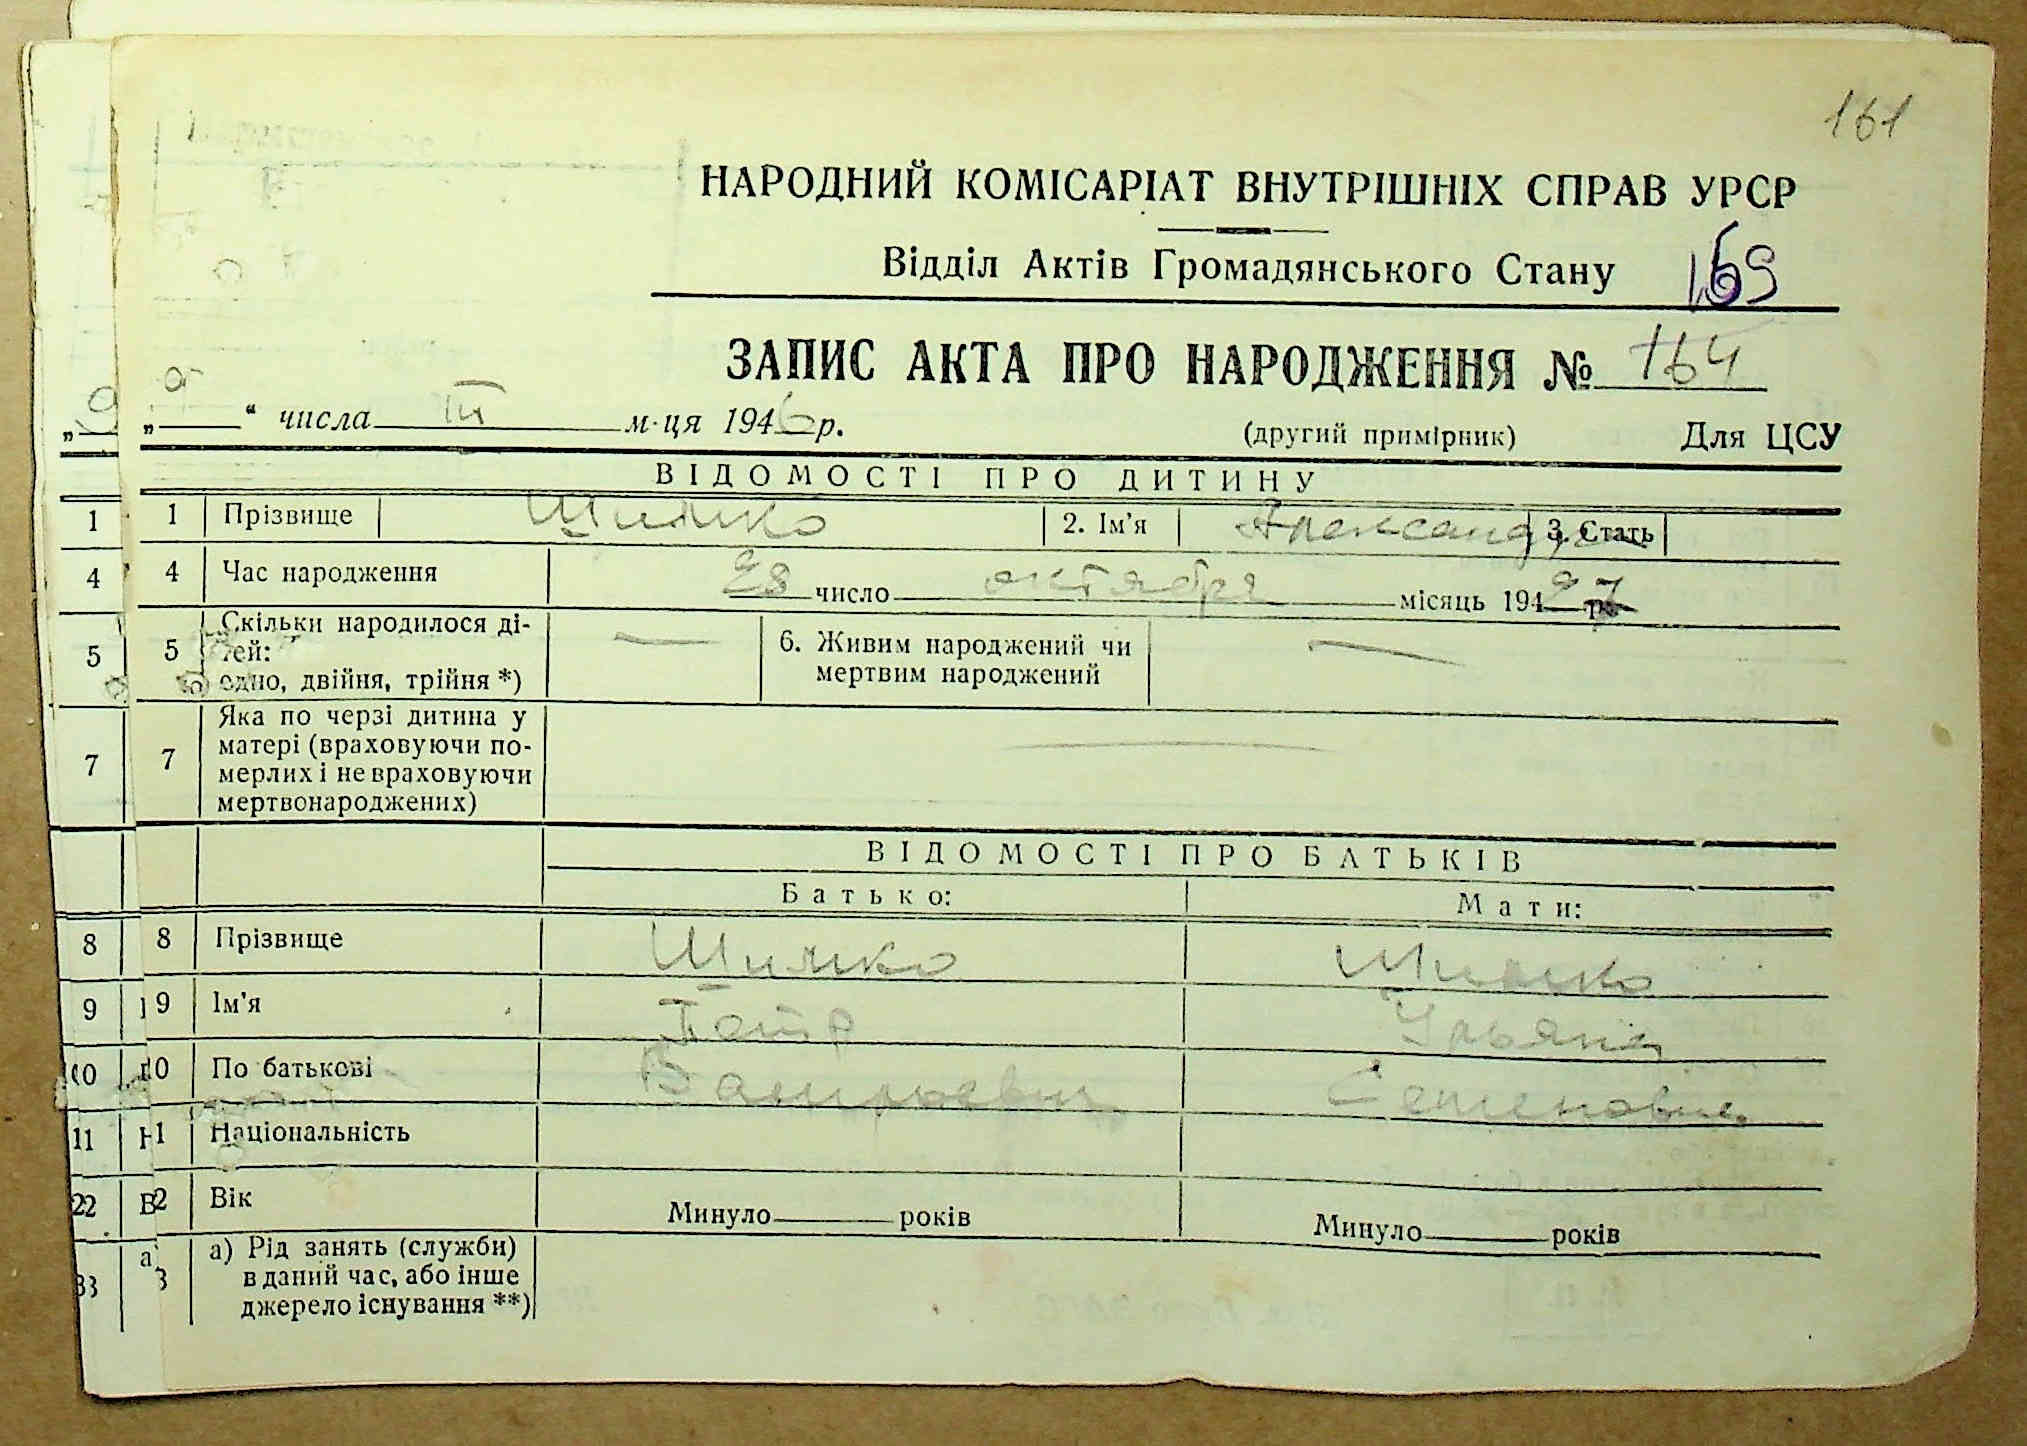 161
НАРОДНИЙ КОМІСАРІАТ ВНУТРІШНІХ СПРАВ УРСР
Відділ Актів Громадянського Стану 169
ЗАПИС АКТА ПРО НАРОДЖЕННЯ № 164
„ 9 “ числа III м-ця 1946 р. (другий примірник) Для ЦСУ
ВІДОМОСТІ ПРО ДИТИНУ
1 1 Прізвище Шимко 2. Ім’я Александр 3. Стать
4 4 Час народження 28 число октября місяць 194 27 р.
5 5 Скільки народилося ді-
тей:
одно, двійня, трійня *) — 6. Живим народжений чи
мертвим народжений —
7 7 Яка по черзі дитина у
матері (враховуючи по-
мерлих і не враховуючи
мертвонароджених) —
ВІДОМОСТІ ПРО БАТЬКІВ
Батько: Мати:
8 8 Прізвище Шимко Шимко
9 9 Ім’я Петр Ульяна
10 По батькові Васильевич Семеновна
11 Національність
Вік Минуло рокiв Минуло років
а) Рід занять (служби)
в даний час, або інше
джерело існування **)